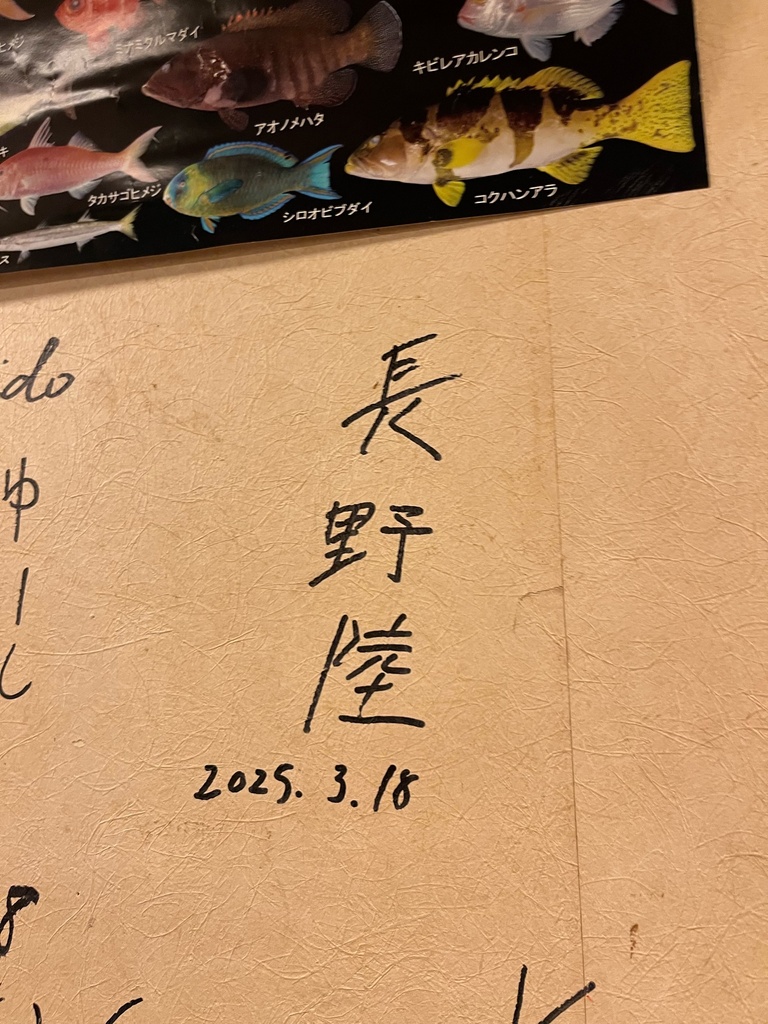 ミナミクルマダイ
キビレアカレンコ
アオノメハタ
タカサゴヒメジ
シロオビブダイ
コクハンアラ
do
ゆーし
長野陸
2025.3.18
8